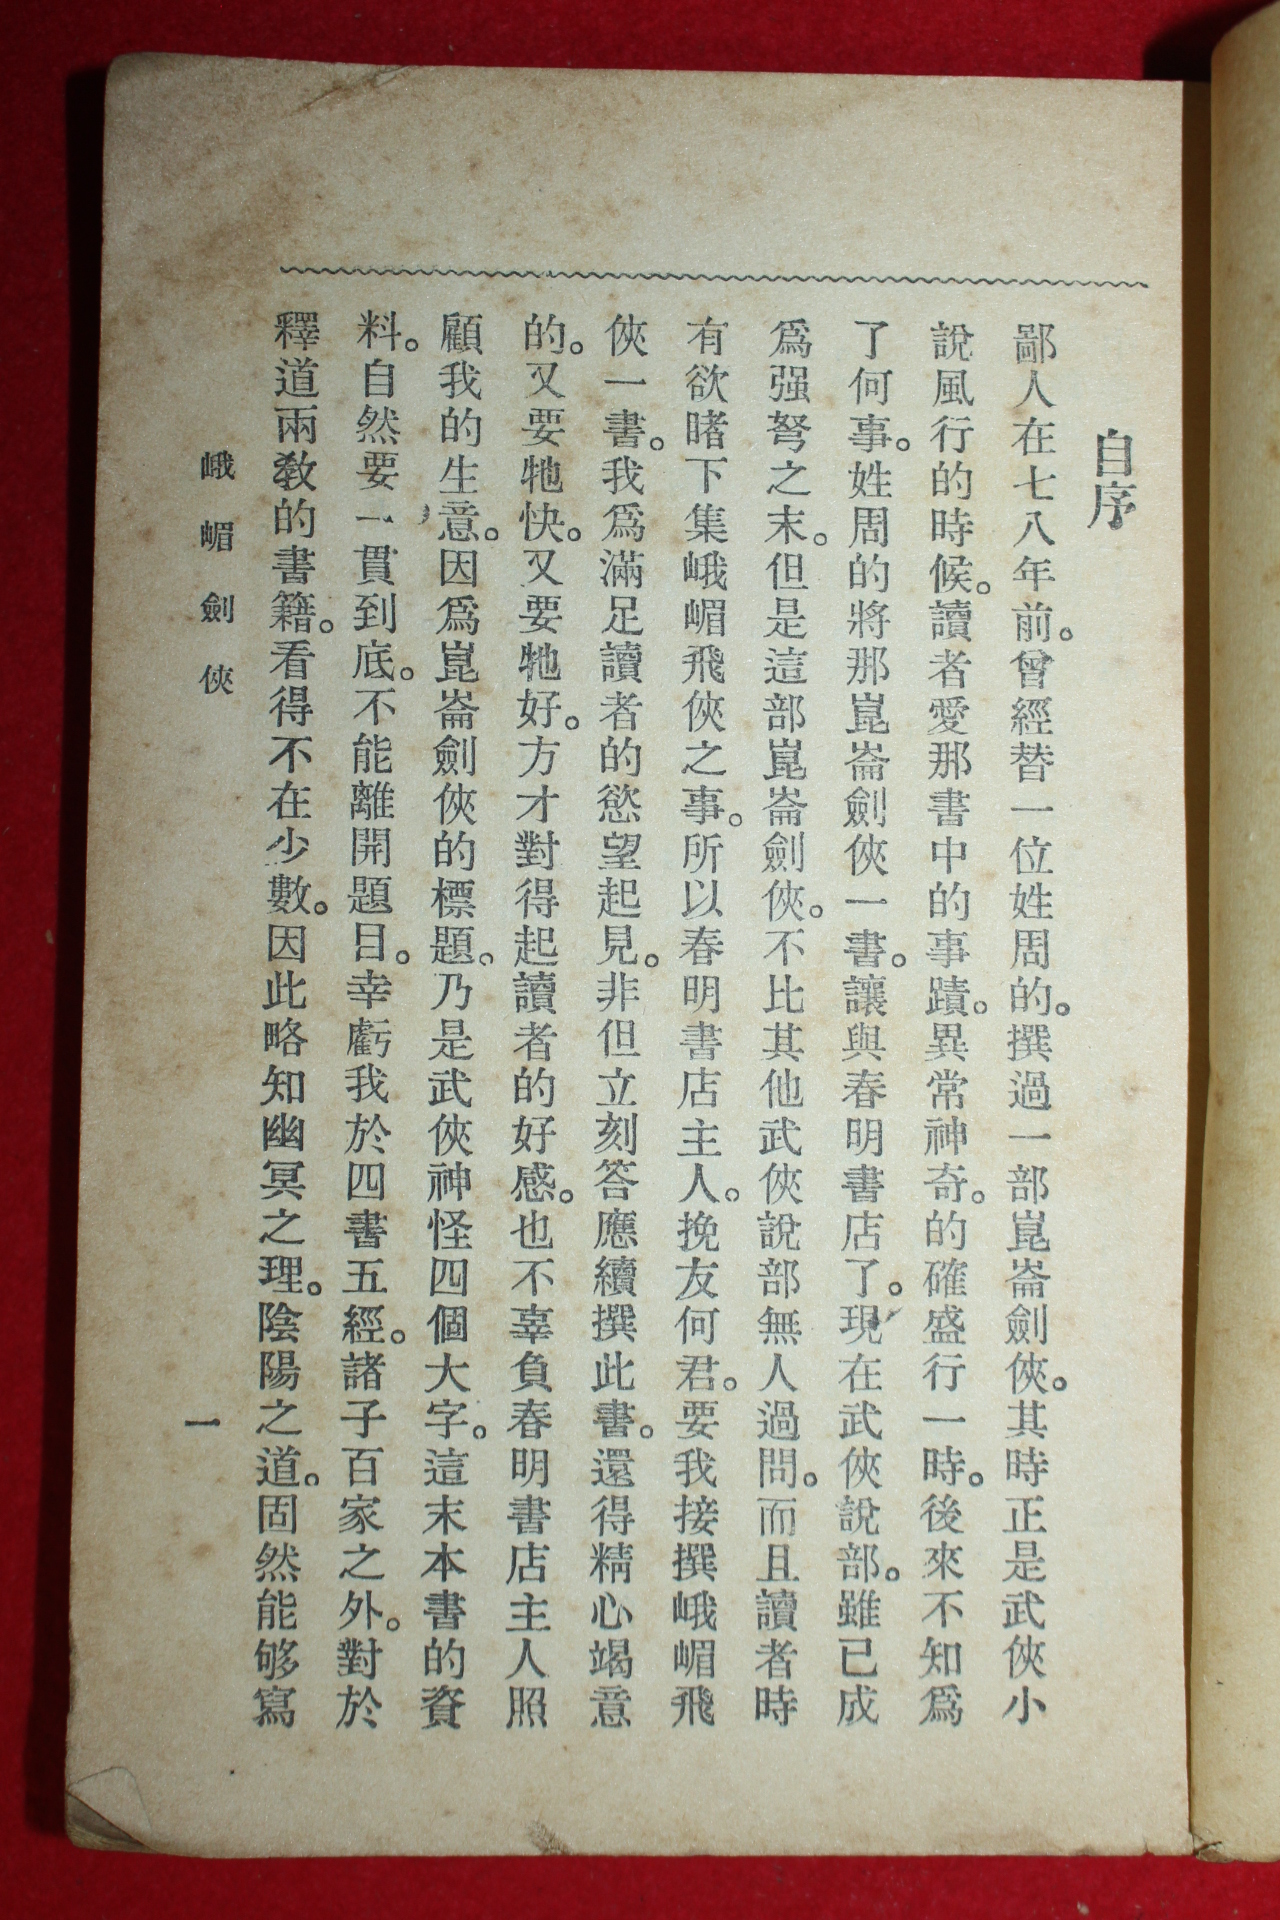 自序
鄙人在七八年前。曾經替一位姓周的。撰過一部崑崙劍俠。其時正是武俠小
說風行的時候。讀者愛那書中的事蹟。異常神奇。的確盛行一時。後來不知爲
了何事。姓周的將那崑崙劍俠一書。讓與春明書店了。現在武俠說部。雖已成
爲强弩之末。但是這部崑崙劍俠。不比其他武俠說部無人過問。而且讀者時
有欲睹下集峨嵋飛俠之事。所以春明書店主人。挽友何君。要我接撰峨嵋飛
俠一書。我爲滿足讀者的慾望起見。非但立刻答應續撰此書。還得精心竭意
的。又要牠快。又要牠好。方才對得起讀者的好感。也不辜負春明書店主人照
顧我的生意。因爲崑崙劍俠的標題。乃是武俠神怪四個大字。這末本書的資
料。自然要一貫到底。不能離開題目。幸虧我於四書五經。諸子百家之外。對於
釋道兩敎的書籍。看得不在少數。因此略知幽冥之理。陰陽之道。固然能够寫
峨嵋劍俠
一